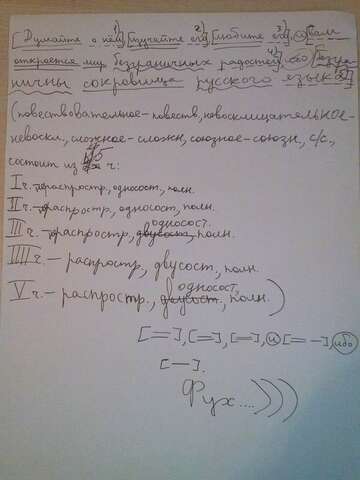 [Думайте о нём]¹⁾[изучайте его]²⁾[любите его]³⁾, и [вам
откроется мир безграничных радостей]⁴⁾, ибо [безгра-
ничны сокровища русского языка]⁵⁾
(повествовательное-повеств, невосклицательное-
невоскл, сложное-сложн, союзное-союзн, с/с,
состоит из 5 ч:
I ч.-нераспростр, односост, полн.
II ч.-распростр, односост, полн.
III ч.-распростр, двусост, односост. полн.
IIII ч.-распростр, двусост, полн.
V ч.-распростр., двусост, односост, полн.)
[=], [=], [=], и [= -], ибо
[—].
Фух....)))